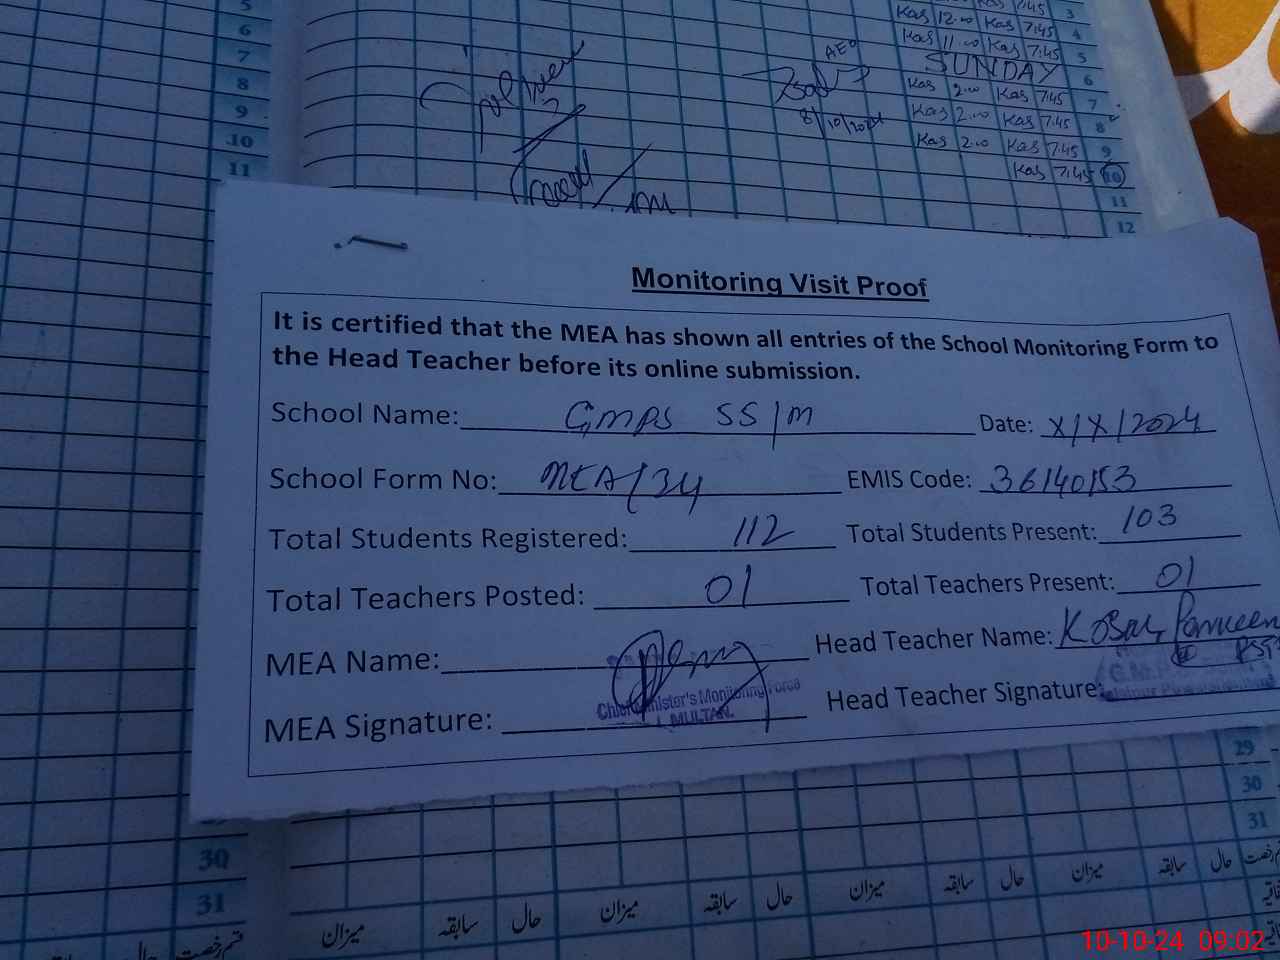 5
6
7
8
9
10
11
Kas 7.45 3
Kas 12.00 Kas 7.45 4
Kas 11.00 Kas 7.45 5
SUNDAY 6
Kas 2.00 Kas 7.45 7
Kas 2.00 Kas 7.45 8
Kas 2.00 Kas 7.45 9
Kas 7.45 10
11
12
AEO
8/10/2024
Monitoring Visit Proof
It is certified that the MEA has shown all entries of the School Monitoring Form to
the Head Teacher before its online submission.
School Name: GMPS SS/M Date: X/X/2024
School Form No: MEA/34 EMIS Code: 36140153
Total Students Registered: 112 Total Students Present: 103
Total Teachers Posted: 01 Total Teachers Present: 01
MEA Name: Head Teacher Name: Kosar Parveen
PST
MEA Signature: Head Teacher Signature:
Chief Minister's Monitoring Force
MULTAN.
29
30
31
30
31
میزان سابقہ حال میزان سابقہ حال میزان سابقہ حال میزان سابقہ حال قسم رخصت
حال قسم رخصت
10-10-24 09:02